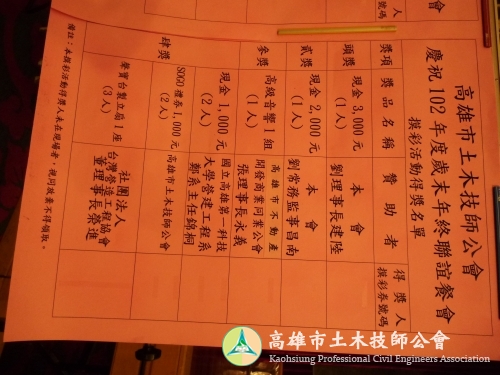 高雄市土木技師公會
慶祝102年度歲末年終聯誼餐會
摸彩活動得獎名單
獎項 獎品名稱 贊助者 得獎人
摸彩券號碼
頭獎 現金3,000元
(1人)
本會
劉理事長建陸
貳獎 現金2,000元
(1人)
本會
劉常務監事昌南
參獎 高級音響1組
(1人)
高雄市不動產
開發商業同業公會
張理事長永義
現金1,000元
(2人)
國立高雄第一科技
大學營建工程系
鄭系主任錦桐
肆獎 SOGO禮券1,000元
(2人)
高雄市土木技師公會
聲寶台製立扇1座
(3人)
社團法人
台灣營造工程協會
董理事長榮進
備註:本摸彩活動得獎人未在現場者,視同放棄不得領取。
公會
獎人
券號碼
高雄市土木技師公會
Kaohsiung Professional Civil Engineers Association